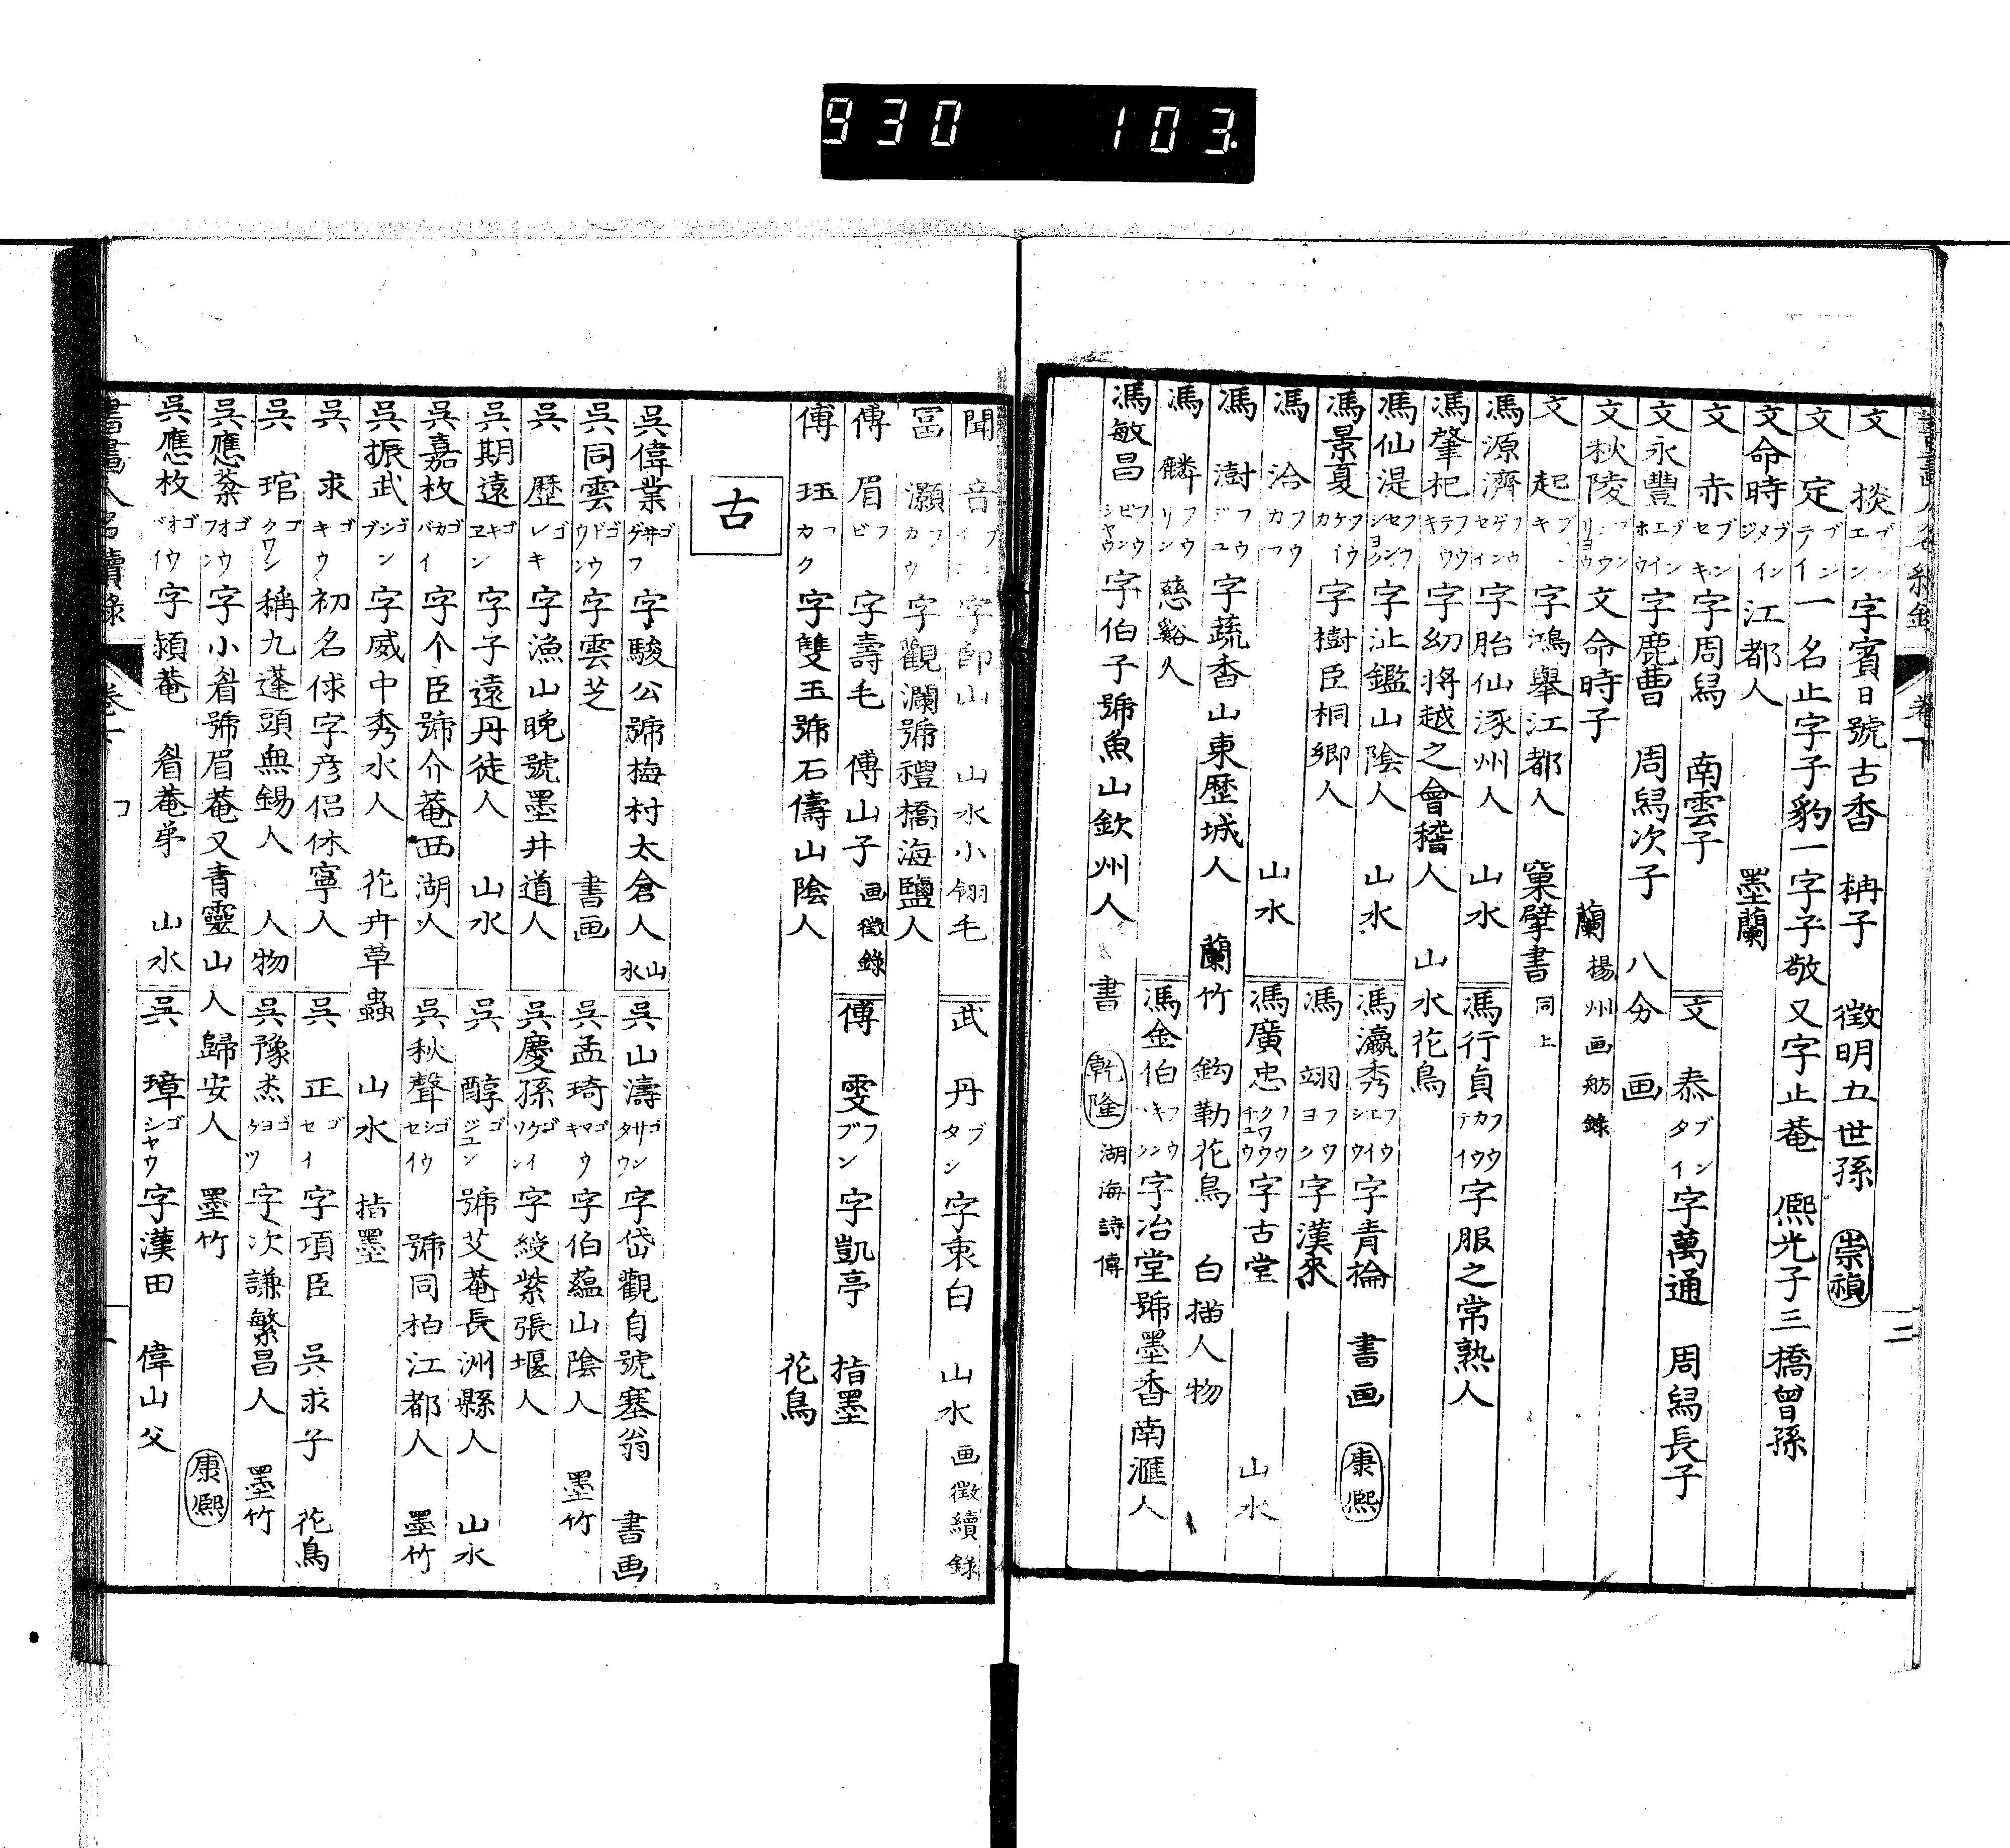 930 103.
卷下
二
文掞 字賓日號古香 柟子 徵明五世孫 崇禎
文定 一名止字子豹一字子敬又字止菴 熙光子三橋曾孫
文命時 江都人 墨蘭
文赤 字周舄 南雲子 文泰 字萬通 周舄長子
文永豐 字鹿曹 周舄次子 八分 画
文秋陵 文命時子 蘭 揚州画舫錄
文起 字鴻舉江都人 窠擘書 同上
馮源濟 字胎仙涿州人 山水 馮行貞 字服之常熟人
馮肇杞 字幼將越之會稽人 山水花鳥
馮仙湜 字沚鑑山陰人 山水 馮瀛秀 字青棆 書画 康熙
馮景夏 字樹臣桐鄉人 馮翊 字漢來
馮洽 山水 馮廣忠 字古堂 山水
馮澍 字蔬香山東歷城人 蘭竹 鈎勒花鳥 白描人物
馮麟 慈谿人 馮金伯 字冶堂號墨香南滙人
馮敏昌 字伯子號魚山欽州人 書 乾隆 湖海詩傳
聞音 字卽山 山水小翎毛 武丹 字衷白 山水 画徵續錄
富灝 字觀瀾號禮橋海鹽人
傅眉 字壽毛 傅山子 画徵錄 傅雯 字凱亭 指墨
傅珏 字雙玉號石儔山陰人 花鳥
古
吳偉業 字駿公號梅村太倉人 山水 吳山濤 字岱觀自號塞翁 書画
吳同雲 字雲芝 書画 吳孟琦 字伯蘊山陰人 墨竹
吳歷 字漁山晚號墨井道人 吳慶孫 字綬紫張堰人
吳期遠 字子遠丹徒人 山水 吳醇 號艾菴長洲縣人 山水
吳嘉枚 字个臣號介菴西湖人 吳秋聲 號同柏江都人 墨竹
吳振武 字威中秀水人 花卉草蟲 山水 指墨
吳求 初名俅字彥侶休寧人 吳正 字項臣 吳求子 花鳥
吳琯 稱九蓬頭無錫人 人物 吳豫杰 字次謙繁昌人 墨竹
吳應棻 字小眉號眉菴又青靈山人歸安人 墨竹 康熙
吳應枚 字潁菴 眉菴弟 山水 吳璋 字漢田 偉山父
書畫人名續錄 卷下 コ